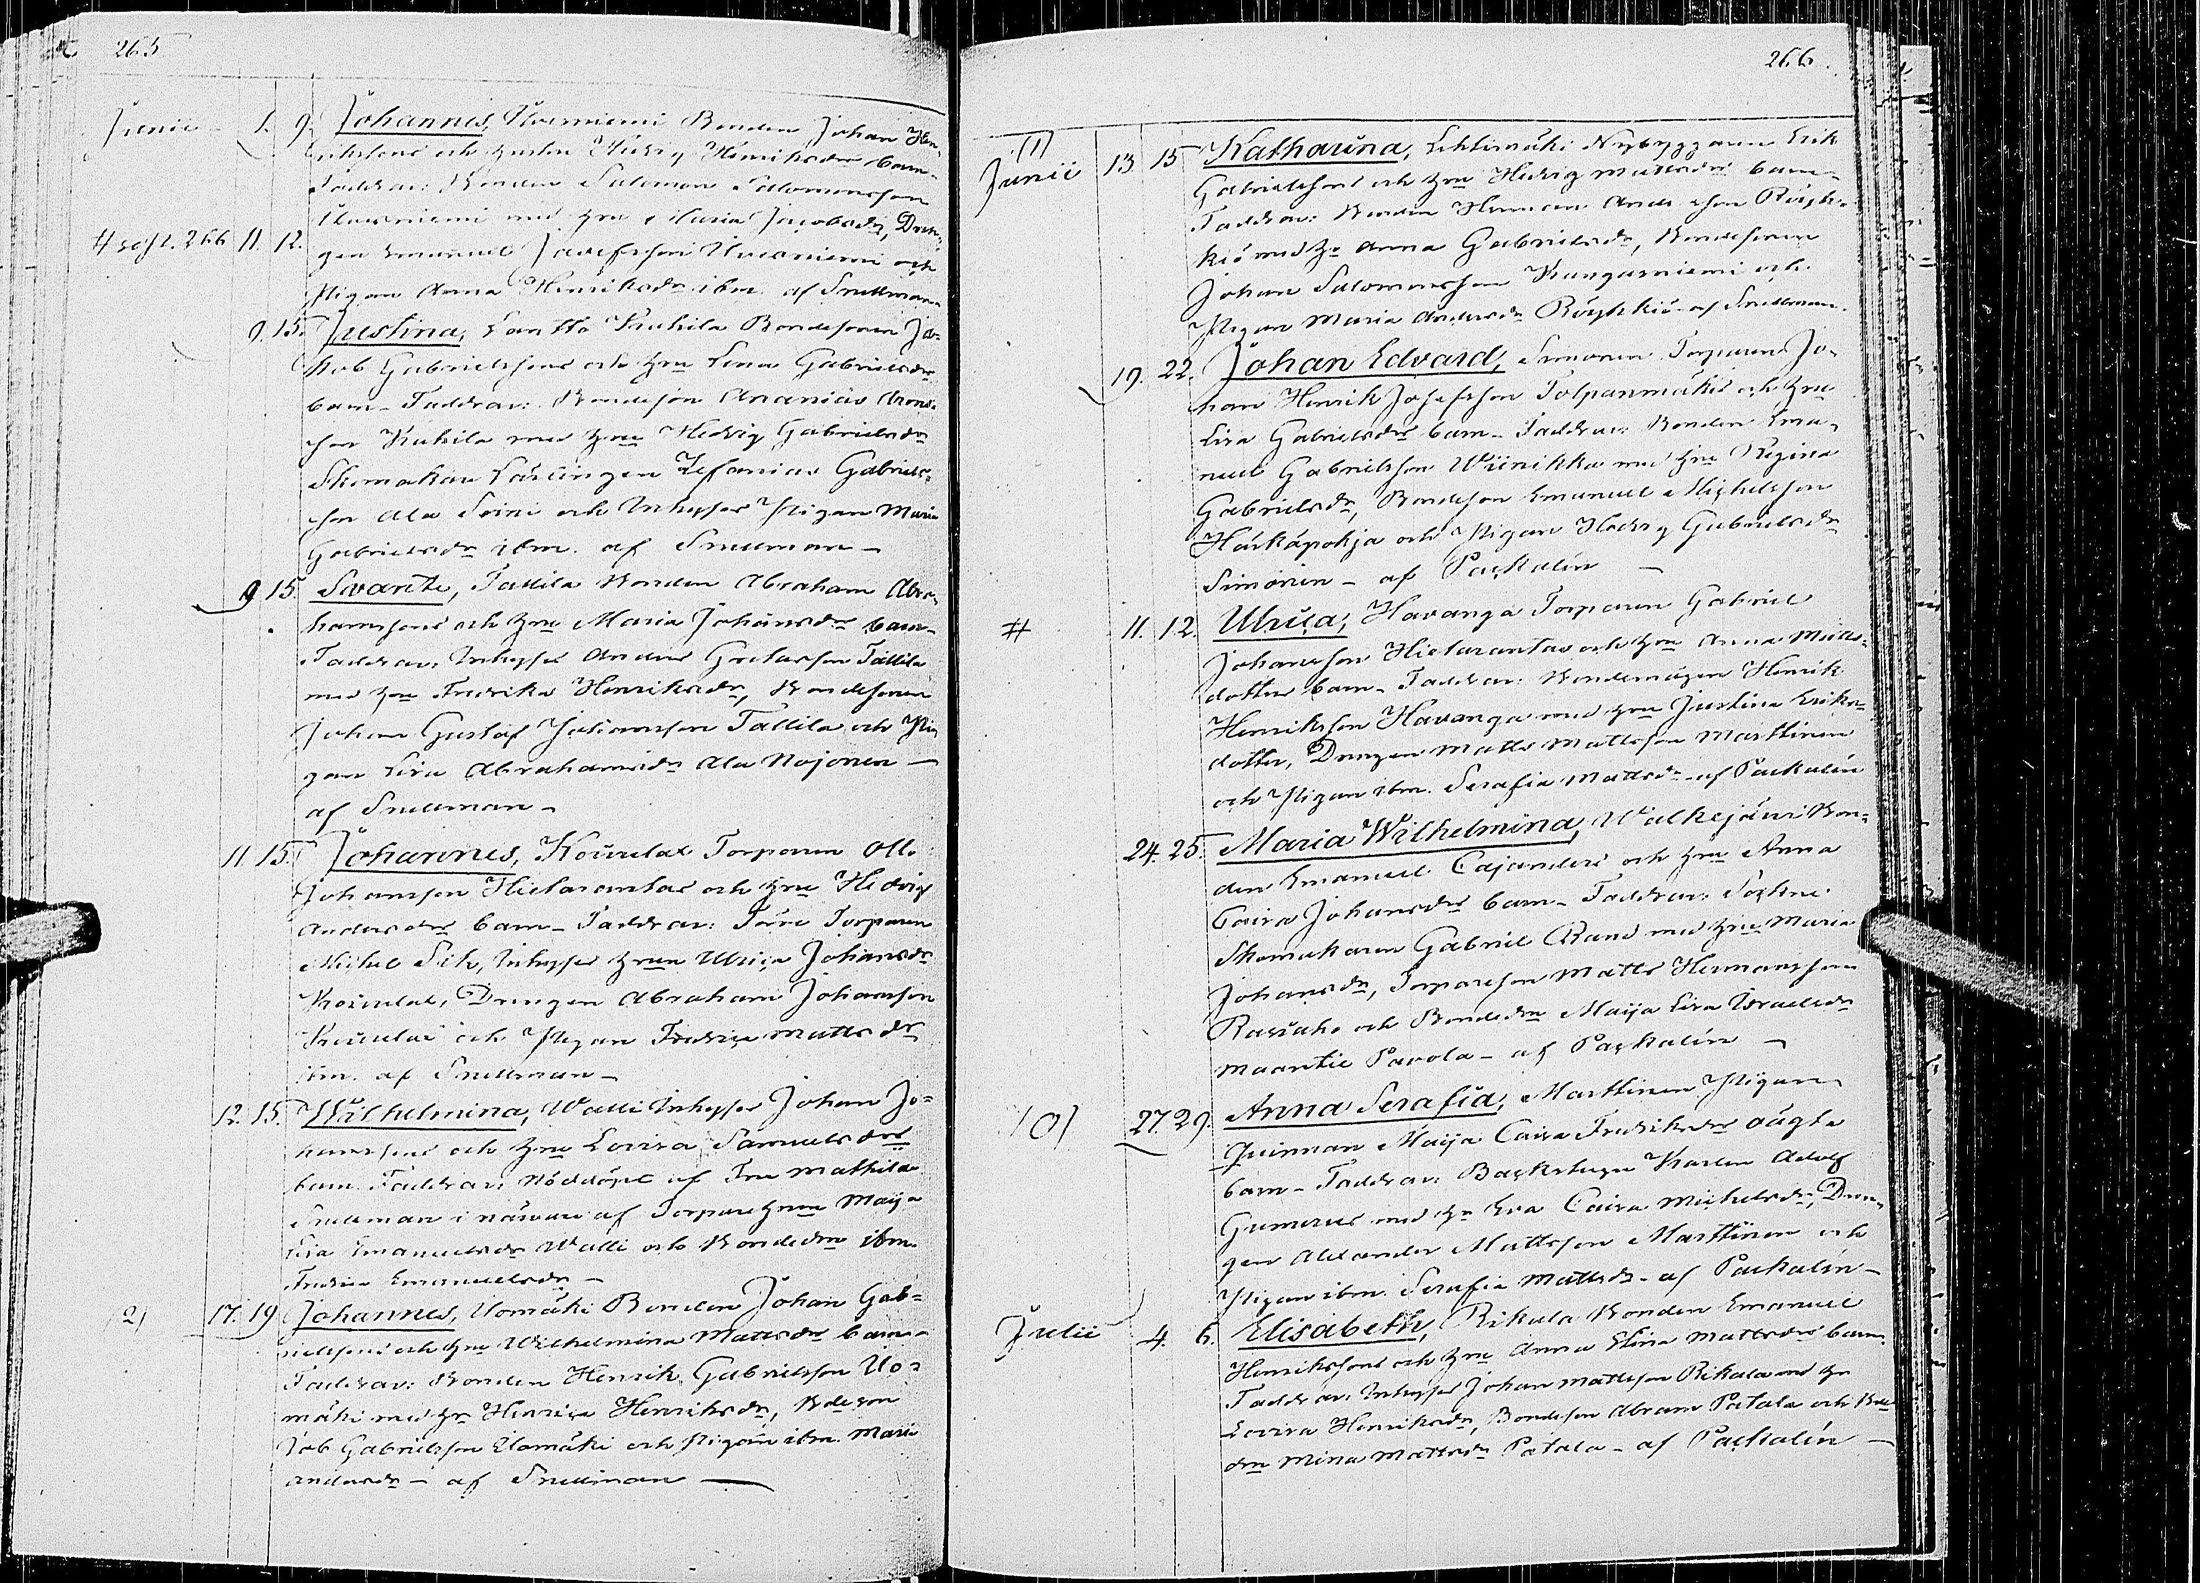 265
Junii 1. 9. Johannes, Uvesniemi Bonden Johan Hen-
rikssons och hustru Hedvig Henriksdrs barn-
Faddrar: Bonden Salomon Salomonsson
Uvesniemi med hru Maria Jacobsdr, Dren-
# 266 11. 12. gen Emanuel Josefsson Uvesniemi och
Pigan Anna Henriksdr ibm. af Snellman
9. 15. Justina, Bondesonen Ja-
kob Gabrielssons och hru Lena Gabrielsdrs
barn - Faddrar: Bondeson Ananias Arons-
son Kuhila med hru Hedvig Gabrielsdr
Skomakare Lärlingen Zefanias Gabriels-
son Ala Soini och Inhyses Pigan Maria
Gabrielsdr ibm. af Snellman -
9 15 Svante, Tallila Bonden Abraham Abra-
hamssons och hru Maria Johansdrs barn-
Faddrar: Inhyses Anders Tallila
med hru Fredrika Henriksdr, Bondesonen
Johan Gustaf Johansson Tallila och Pi-
gan Lisa Abrahamsdr Ala Nojonen -
af Snellman -
11. 15. Johannes, Torparen Olli
Johansson Hietarantas och hru Hedvig
Andersdrs barn - Faddrar: Torparen
Michel Sik, Inhyses hrun Ulrica Johansdr
Drengen Abraham Johansson
och Pigan Fredrica Mattsdr
ibm. af Snellman -
12. 15. Wilhelmina, Walli Inhyses Johan Jo-
hanssons och hru Lovisa Samuelsdrs
barn Faddrar: Nöddöpt af Fru Mathilda
Snellman i närvaro af Torpare hrun Maija
Lisa Emanuelsdr Walli och Bondedrn ibm.
Fredrica Emanuelsdr -
(2) 17. 19 Johannes, Uomäki Bonden Johan Gab-
rielssons och hru Wilhelmina Mattsdrs barn -
Faddrar: Bonden Henrik Gabrielsson Uo-
mäki med hr Henrica Henriksdr, Bdeson
Job Gabrielsson Elomäki och Pigan ibm. Maria
Andersdr - af Snellman -
266
(1)
Junii 13 15 Katharina, Lehtimäki Nybyggaren Erik
Gabrielssons och hru Hedvig Mattsdrs barn -
Faddrar: Bonden Herman Andersson Röyh-
kiö med hr Anna Gabrielsdr, Bondesonen
Johan Salomonsson Kangasniemi och
Pigan Maria Andersdr Röyhkiö - af Snellman.
19. 22. Johan Edvard, Simonen Torparen Jo-
han Henrik Josefsson Tolpanmäkis och hru
Lisa Gabrielsdrs barn - Faddrar: Bonden Ema-
nuel Gabrielsson Wiinikka med hru Regina
Gabrielsdr, Bondeson Emanuel Michelsson
Härkäpohja och Pigan Hedvig Gabrielsdr
Simonen - af Packalén -
# 11. 12. Ulrica, Havanga Torparen Gabriel
Johansson Hietarantas och hru Anna Matts-
dotters barn - Faddrar: Bondemågen Henrik
Henriksson Havanga med hru Justina Eriks-
dotter, Drengen Matts Mattsson Marttinen
och Pigan ibm. Serafia Mattsdr - af Packalén
24. 25. Maria Wilhelmina, Walkejärvi Bon-
den Emanuel Cajanders och hru Anna
Caisa Johansdrs barn - Faddrar: Sockne
Skomakaren Gabriel Rand med hru Maria
Johansdr, Torpareson Matts Hermansson
Rasiaho och Bondedrn Maija Lisa Israelsdr
Maantie Pavola - af Packalén -
(0) 27. 29. Anna Serafia, Marttinen Pigan
Qvinnan Maija Caisa Fredriksdrs oägta
barn - Faddrar: Backstugu Karlen Adolf
Gumerus med hr Eva Caisa Michelsdr, Dren-
gen Alexander Mattsson Marttinen och
Pigan ibm. Serafia Mattsdr - af Packalén -
Julii 4. 6. Elisabeth, Rikala Bonden Emanuel
Henrikssons och hru Anna Elisa Mattsdrs barn.
Faddrar: Inhyses Johan Mattsson Rikala med hr
Lovisa Henriksdr, Bondeson Abram Patala och Bde
drn Mina Mattsdr Patala - af Packalén -